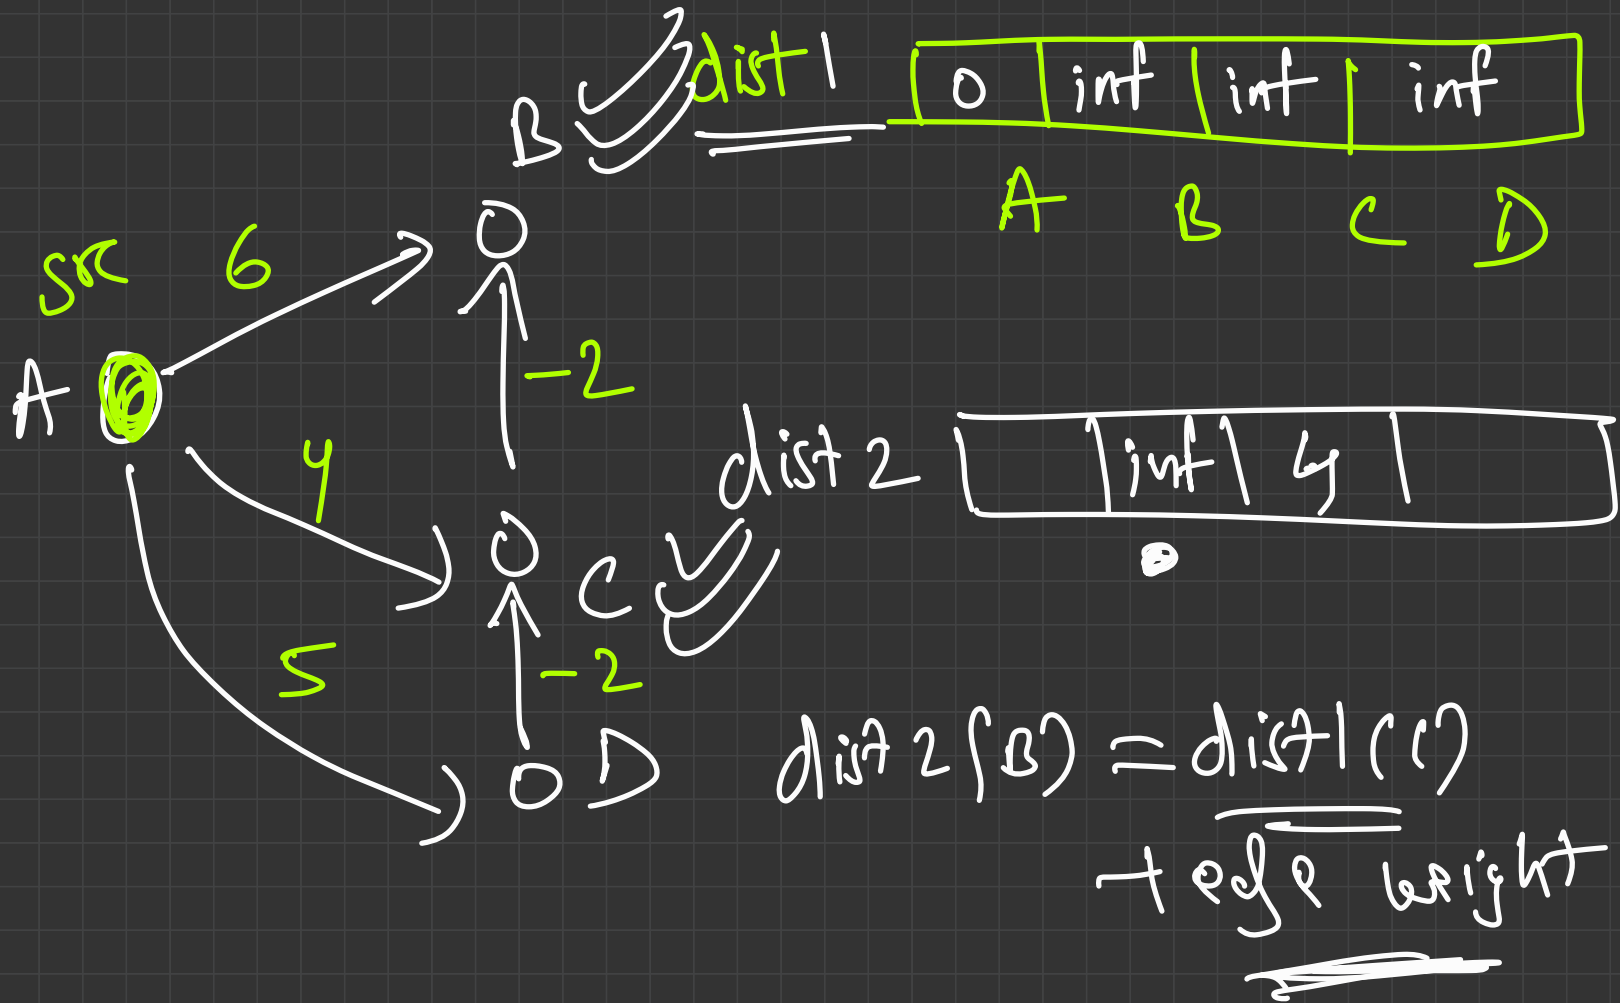 dist1 0 inf inf inf
A B C D
B
src 6
-2
A
4
dist2 inf 4
C
5
-2
D
dist2(B) = dist1(C)
+ edge weight